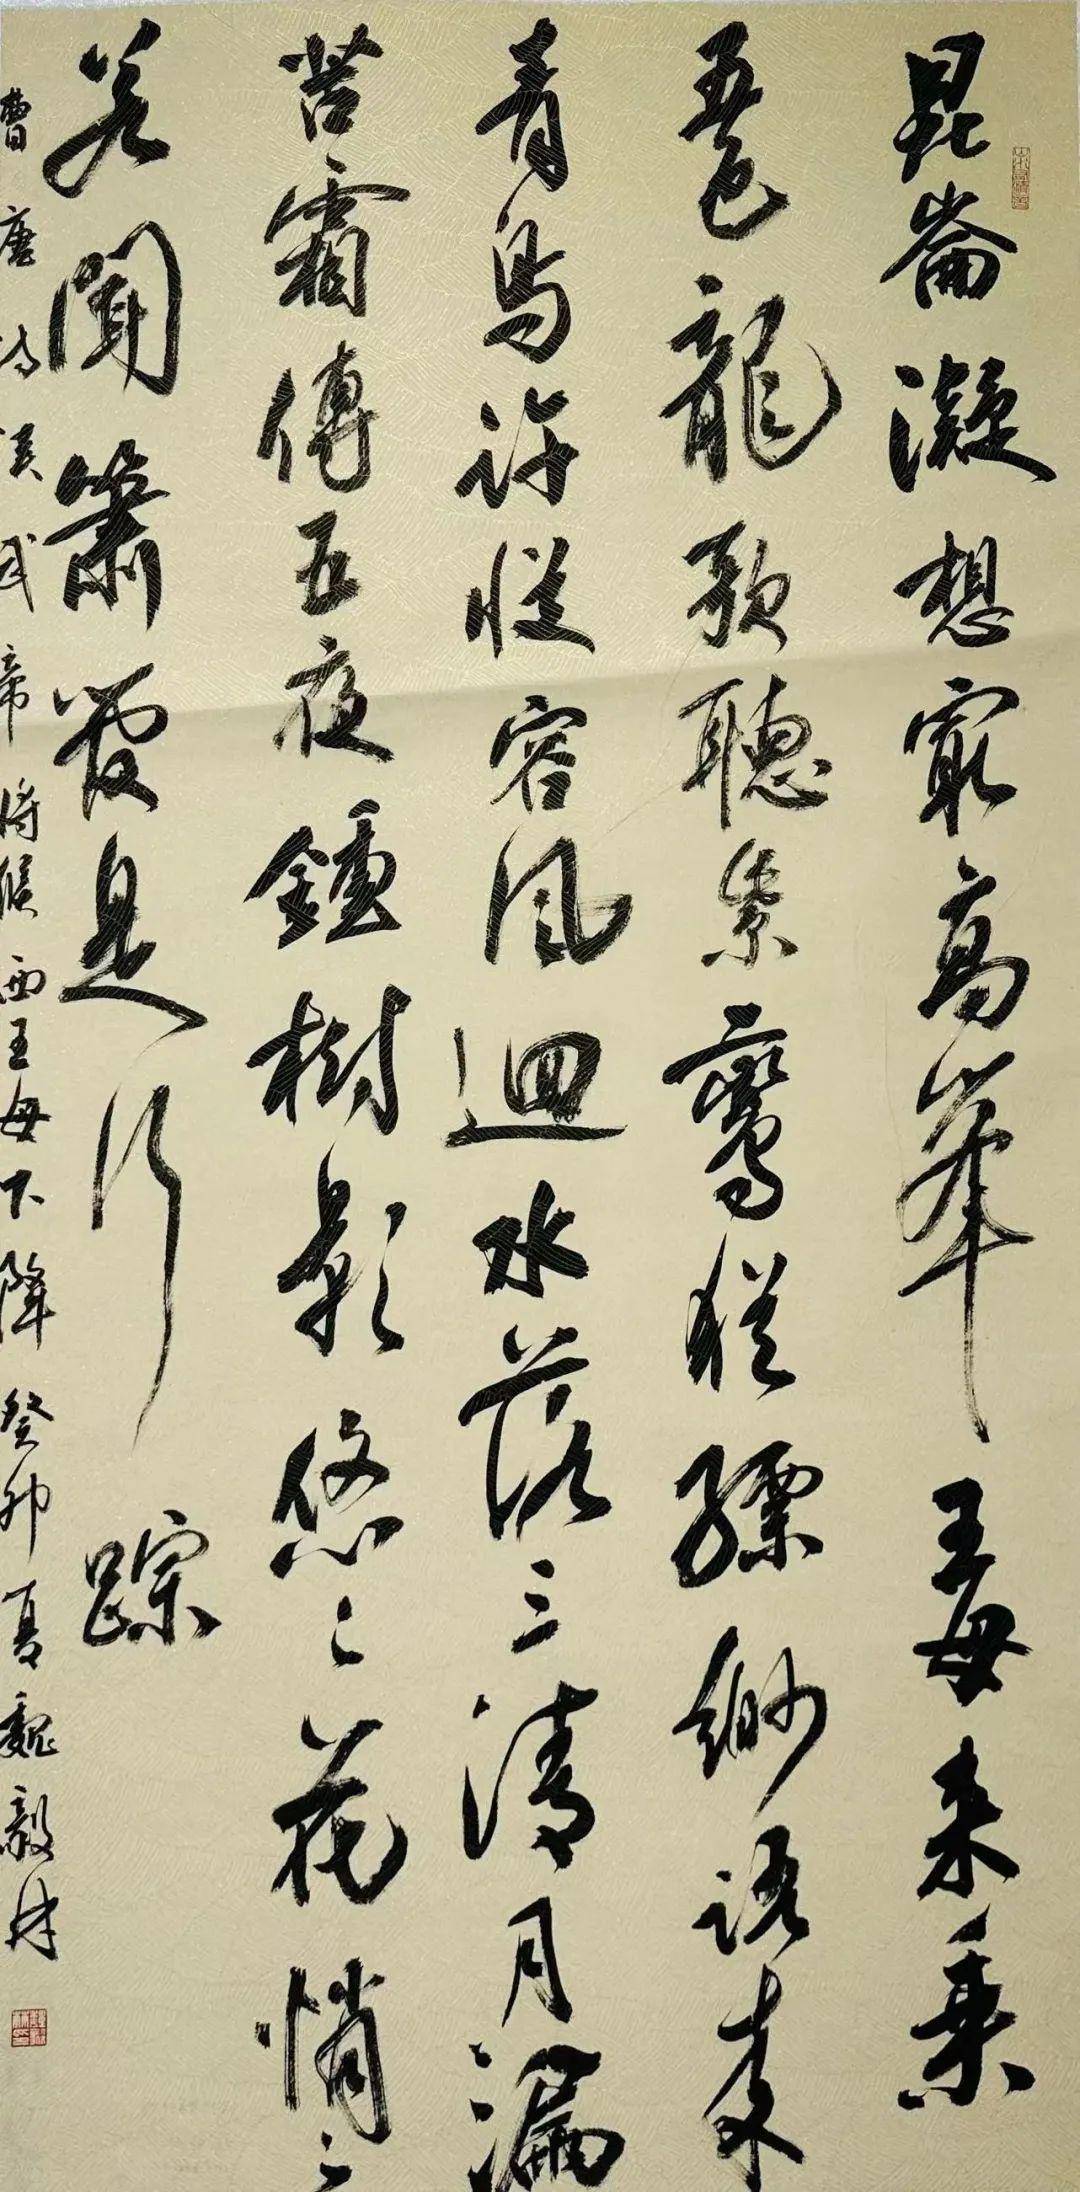 昆崙凝想㝡高峯王母来乘
五色龍歌聽紫鸞猶縹緲語来
青鳥許從容風迴水落三清月漏
苦霜傳五夜鍾樹影悠々花悄々
若聞簫管是行踪
曹唐詩漢武帝將候西王母下降 癸卯夏魏毅林